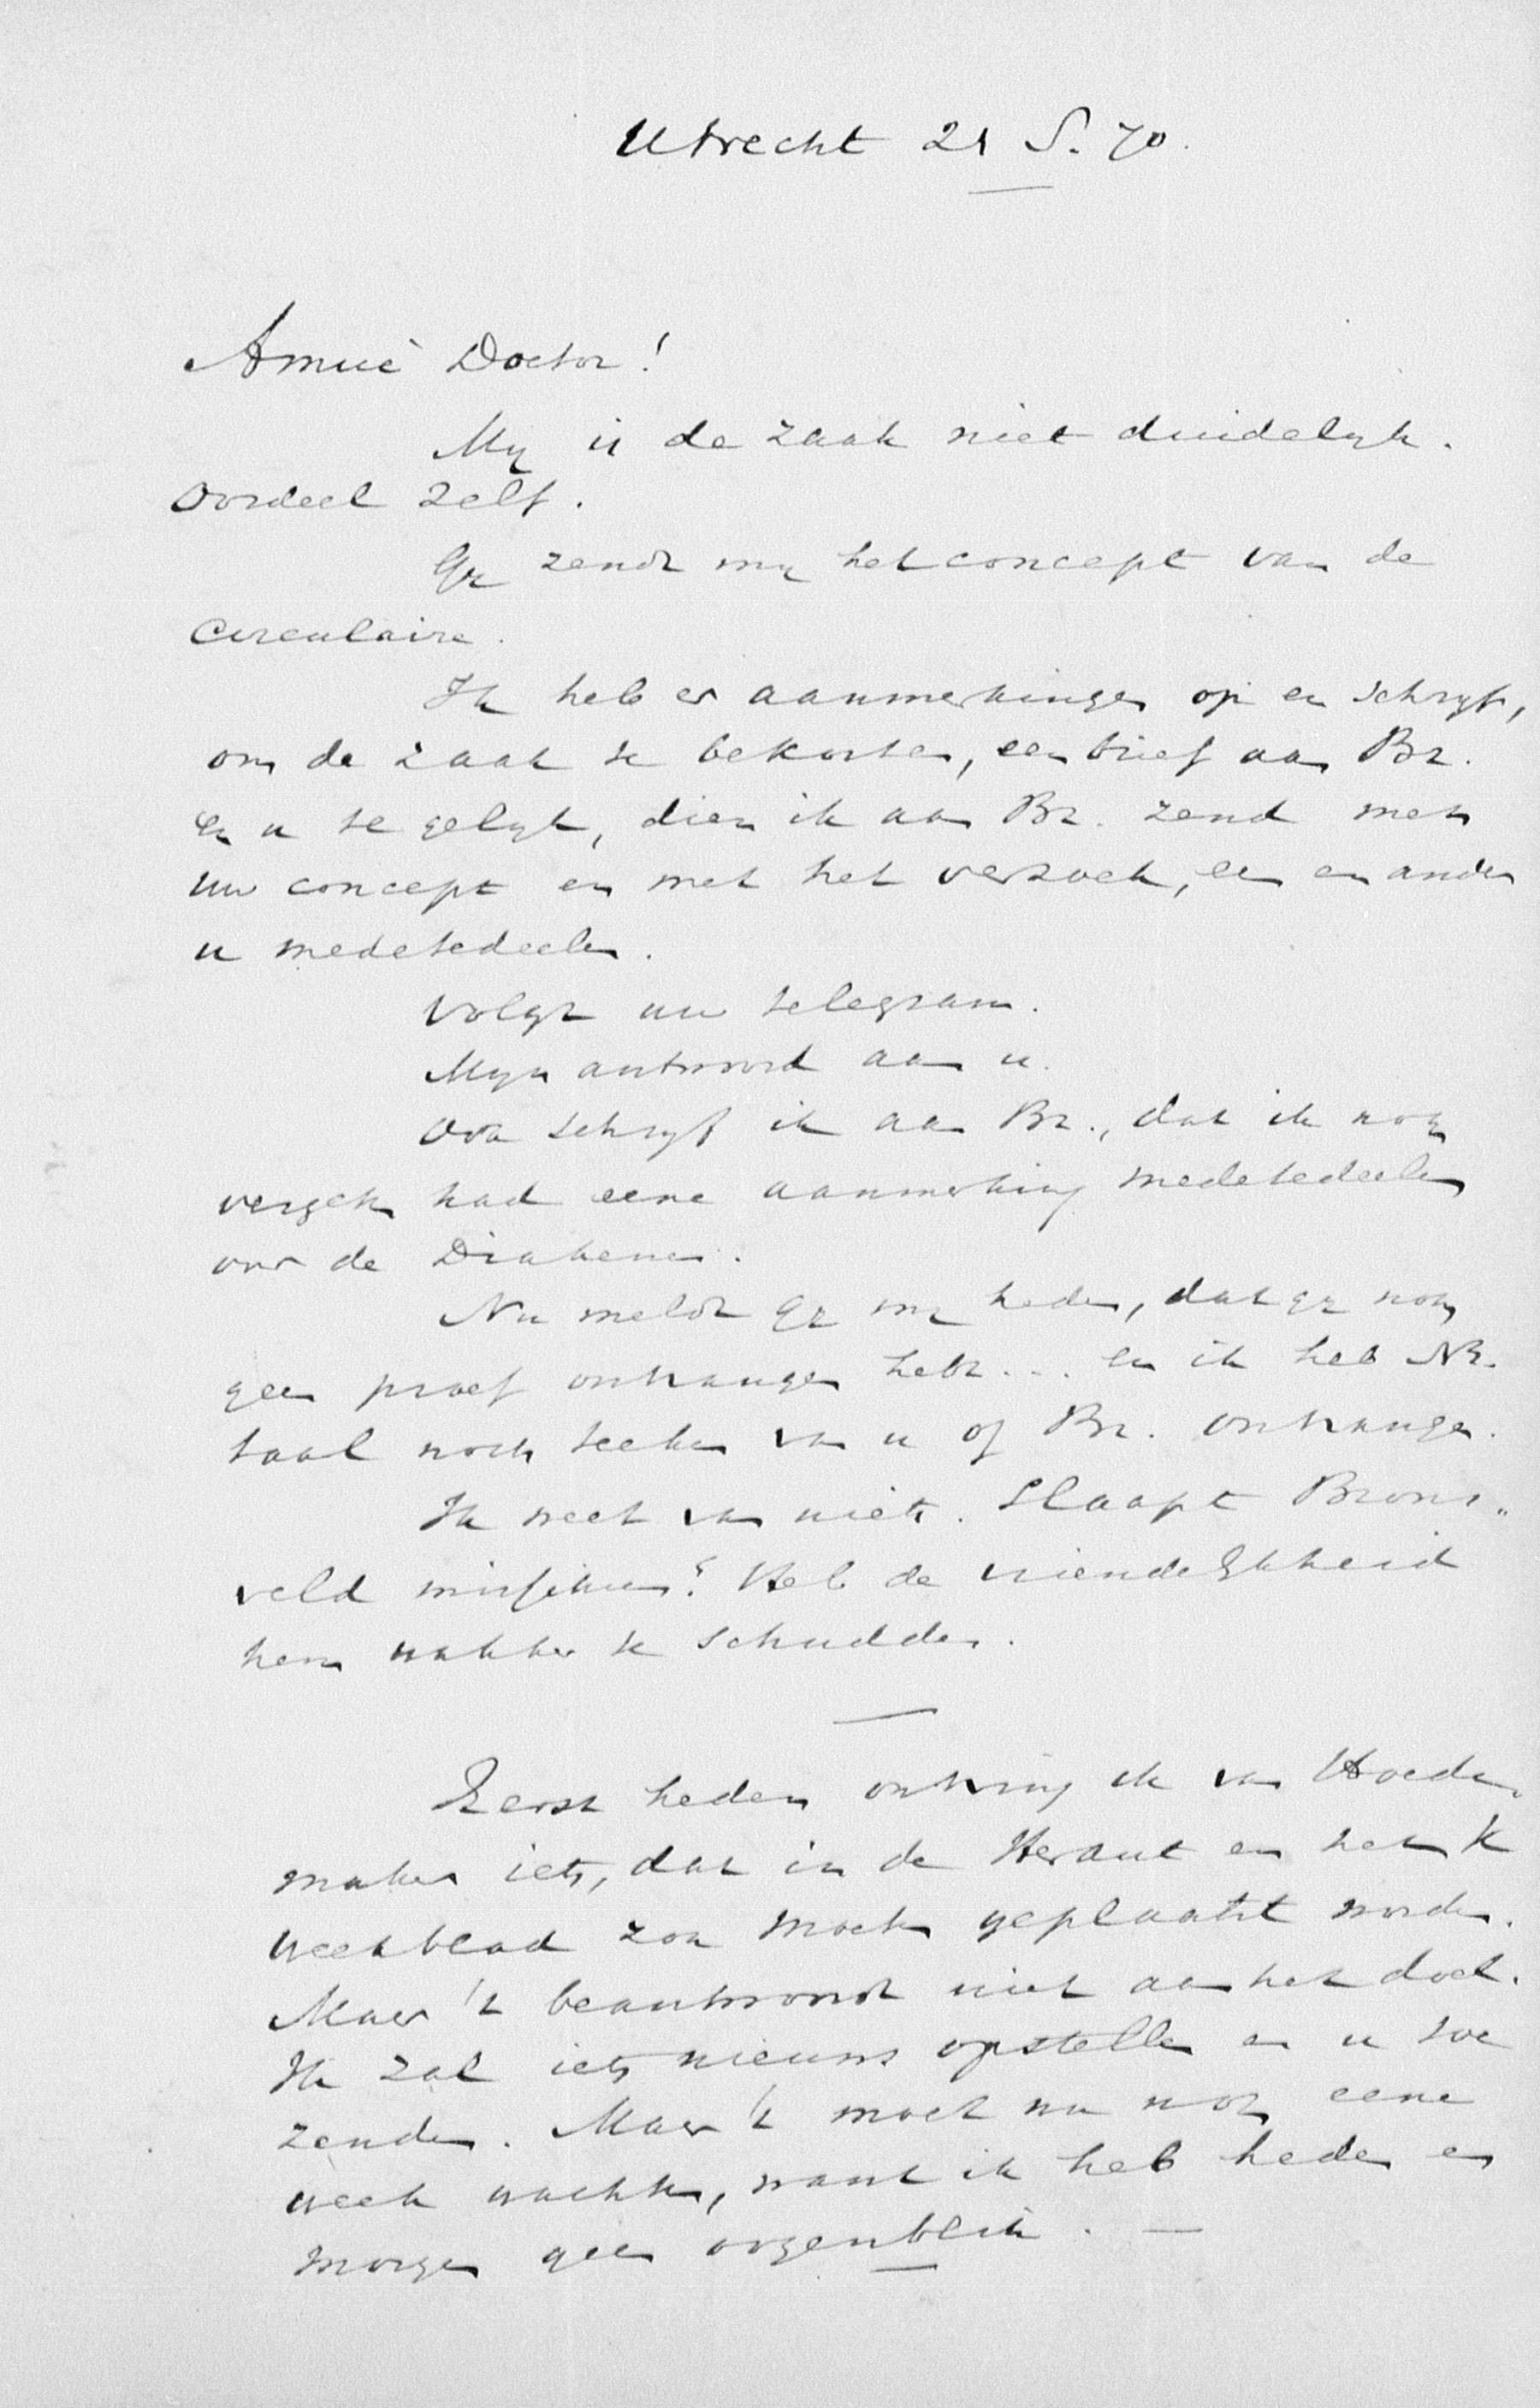 Utrecht 21 S. 70.
Amice Doctor!
Mij is de zaak niet duidelijk.
Oordeel zelf.
Gij zendt mij het concept van de
circulaire.
Ik heb er aanmerkingen op en schrijf,
om de zaak te bekorten, een brief aan Br.
en u te gelijk, dien ik aan Br. zend met
uw concept en met het verzoek, een en ander
u medetedeelen.
Volgt uw telegram.
Mijn antwoord aan u.
Ook schrijf ik aan Br., dat ik nog
vergeten had eene aanmerking medetedeelen
over de Diakenen.
Nu meldt gij mij heden, dat gij nog
geen proef ontvangen hebt... en ik heb
taal noch teeken van u of Br. ontvangen.
Ik weet van niets. Slaapt Brons-
veld misschien? Heb de vriendelijkheid
hem wakker te schudden.
Eerst heden ontving ik van Hoede
maker iets, dat in de Heraut en het K
weekblad zou moeten geplaatst worden.
Maar 't beantwoordt niet aan het doel.
Ik zal iets nieuws opstellen en u toe
zenden. Maar 't moet nu nog eene
week wachten, want ik heb heden en
morgen geen oogenblik. —